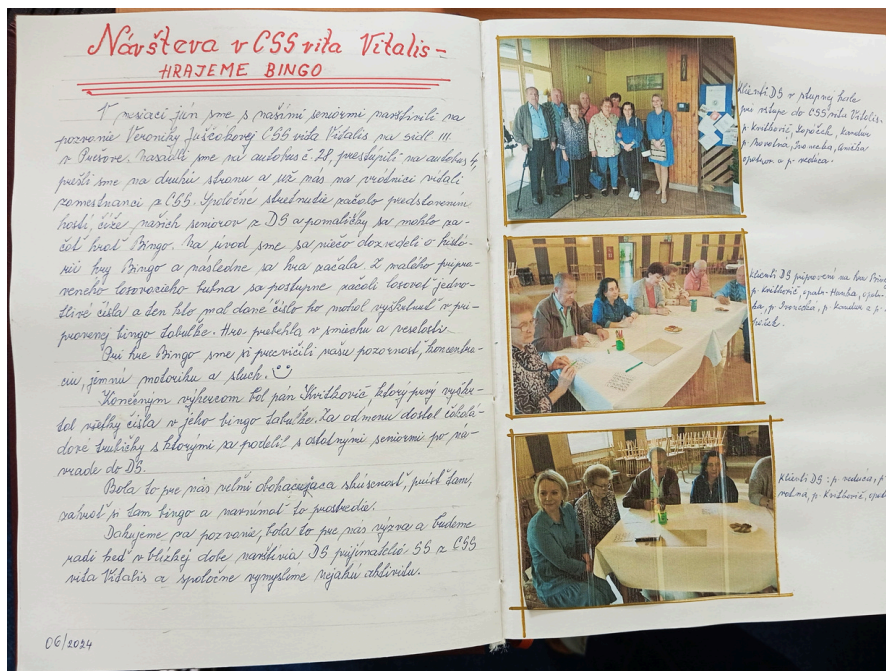 Návšteva v CSS vita Vitalis –
HRAJEME BINGO
V mesiaci jún sme s našimi seniormi navštívili na
pozvanie Veroniky Juščákovej CSS vita Vitalis na sídl. III.
v Prešove. Nasadli sme na autobus č. 28, prestúpili na autobus 4,
prešli sme na druhú stranu a už nás na vrátnici vítali
zamestnanci z CSS. Spoločné stretnutie začalo predstavením
hostí, čiže našich seniorov z DS a pomaličky sa mohlo za-
čať hrať Bingo. Na úvod sme sa niečo dozvedeli o histó-
rii hry Bingo a následne sa hra začala. Z malého pripra-
veného losovacieho bubna sa postupne začali losovať jedno-
tlivé čísla a ten kto mal dané číslo ho mohol vyškrtnúť v pri-
pravenej bingo tabuľke. Hra prebehla v smiechu a veselosti.
Pri hre Bingo sme si precvičili našu pozornosť, koncentrá-
ciu, jemnú motoriku a sluch.
Konečným výhercom bol pán Kvitkovič, ktorý prvý vyškr-
tol všetky čísla v jeho bingo tabuľke. Za odmenu dostal čokolá-
dové trubičky s ktorými sa podelil s ostatnými seniormi po ná-
vrate do DS.
Bola to pre nás veľmi obohacujúca skúsenosť, prísť tam,
zahrať si tam bingo a navnímať to prostredie.
Ďakujeme za pozvanie, bola to pre nás výzva a budeme
radi keď v blízkej dobe navštívia DS prijímatelia SS z CSS
vita Vitalis a spoločne vymyslíme nejakú aktivitu.
06/2024
klienti DS v vstupnej hale
pri vstupe do CSS vita Vitalis.
p. Kvitkovič, p. Kandur
p. Novotná, Anička
a p. vedúca.
klienti DS pripravení na hru Bin
p. Kvitkovič, opatr. Hanka, opatr.
p. Kandur a p.
klienti DS: p. vedúca, p.
p. Kvitkovič, opat